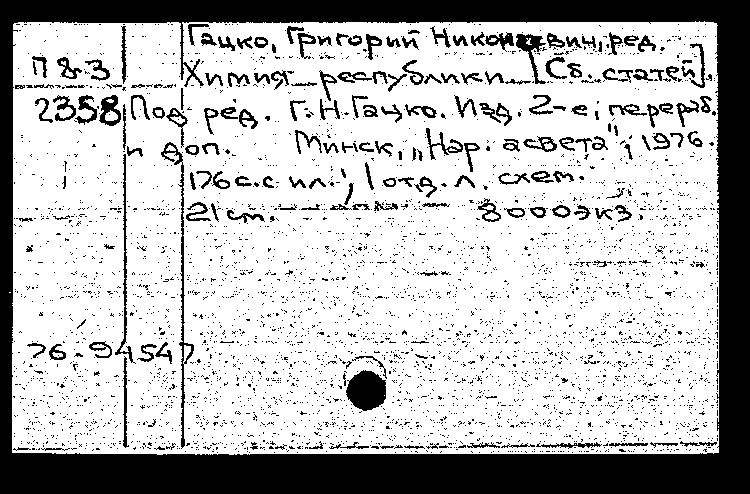 Гацко, Григорий Николаевич, ред.
П 8-3 Химия республики. [Сб. статей].
2358 Под ред. Г.Н. Гацко. Изд. 2-е, перераб.
и доп. Минск, „Нар. асвета", 1976.
176 с. с ил.; 1 отд. л. схем.
21 см. 8000 экз.
76-94547.